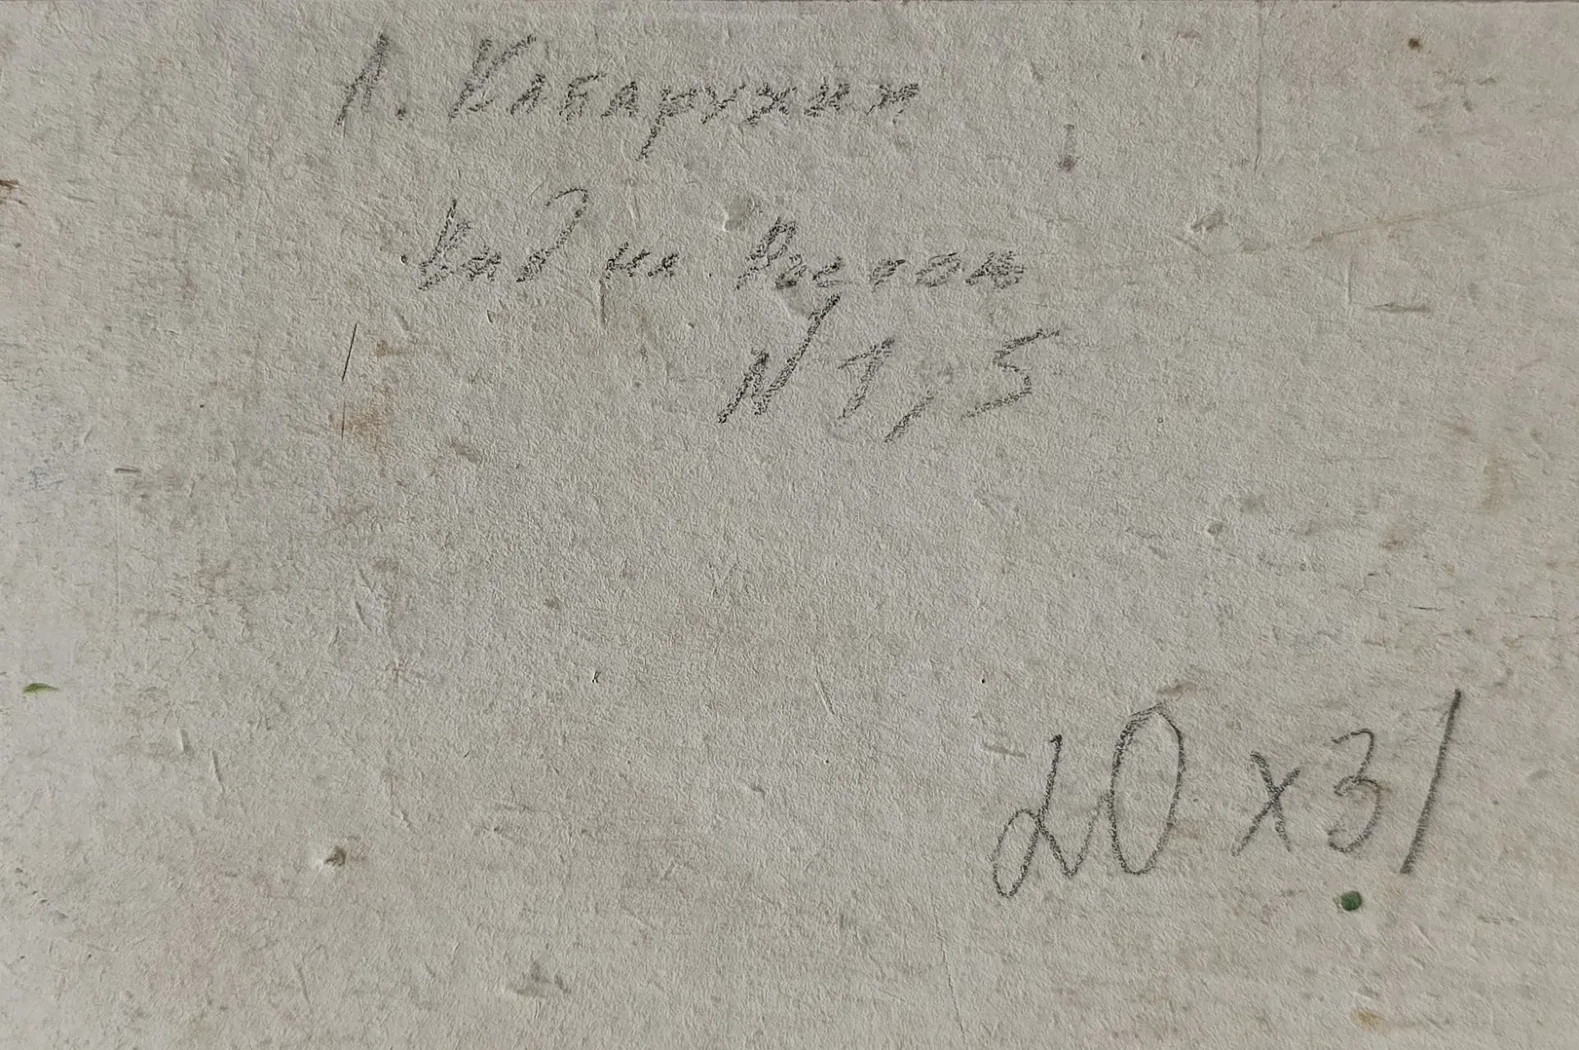 А. Кабарухин
Вид на Ростов
N 1,5
20 x 31